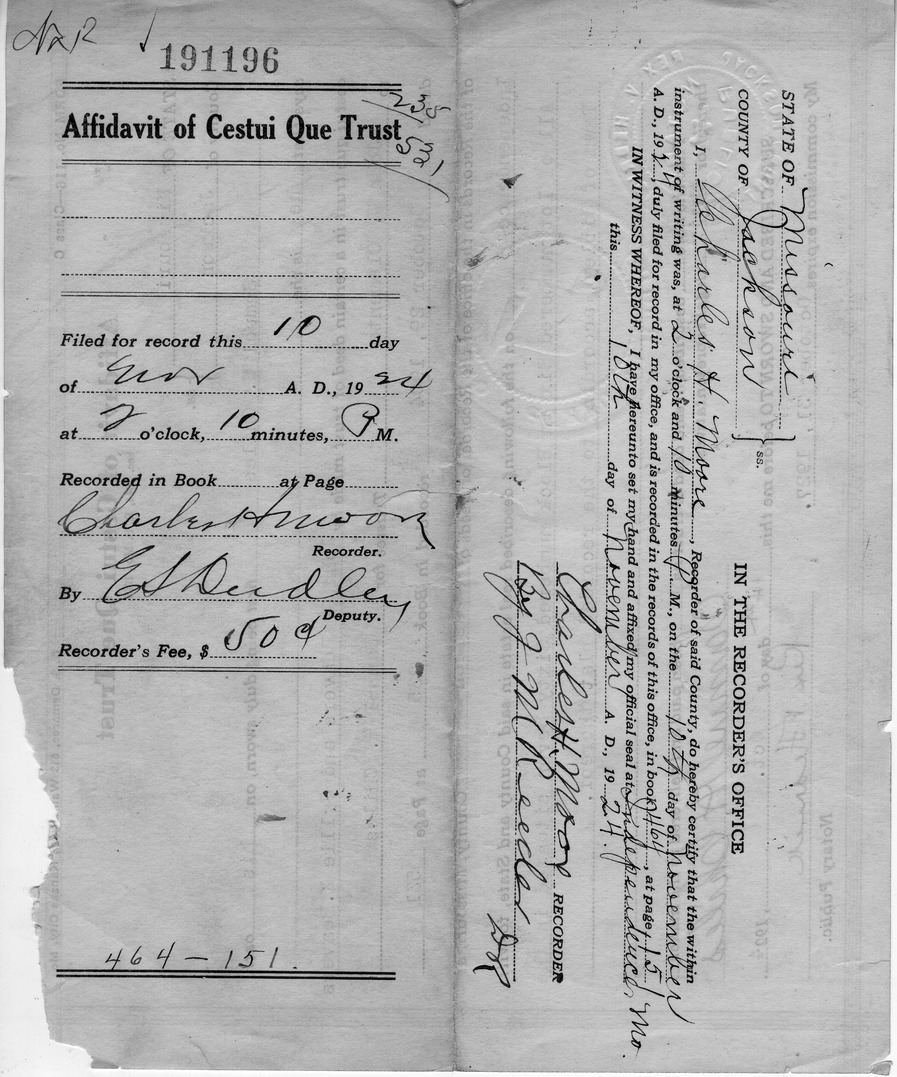 191196
238
521
Affidavit of Cestui Que Trust
Filed for record this 10 day
of Nov A. D., 1924
at 2 o'clock, 10 minutes, P M.
Recorded in Book at Page
Charles H Moore
Recorder.
By E S Dudley
Deputy.
Recorder's Fee, $ 50¢
464 - 151.
STATE OF Missouri
COUNTY OF Jackson
ss.
IN THE RECORDER'S OFFICE
I, Charles H. Moore, Recorder of said County, do hereby certify that the within
instrument of writing was, at 2 o'clock and 10 minutes P M., on the 10th day of November
A. D., 1924, duly filed for record in my office, and is recorded in the records of this office, in book 464, at page 151
IN WITNESS WHEREOF, I have hereunto set my hand and affixed my official seal at Independence, Mo.
this 10th day of November A. D., 1924.
Charles H. Moore RECORDER
By J M Reeder